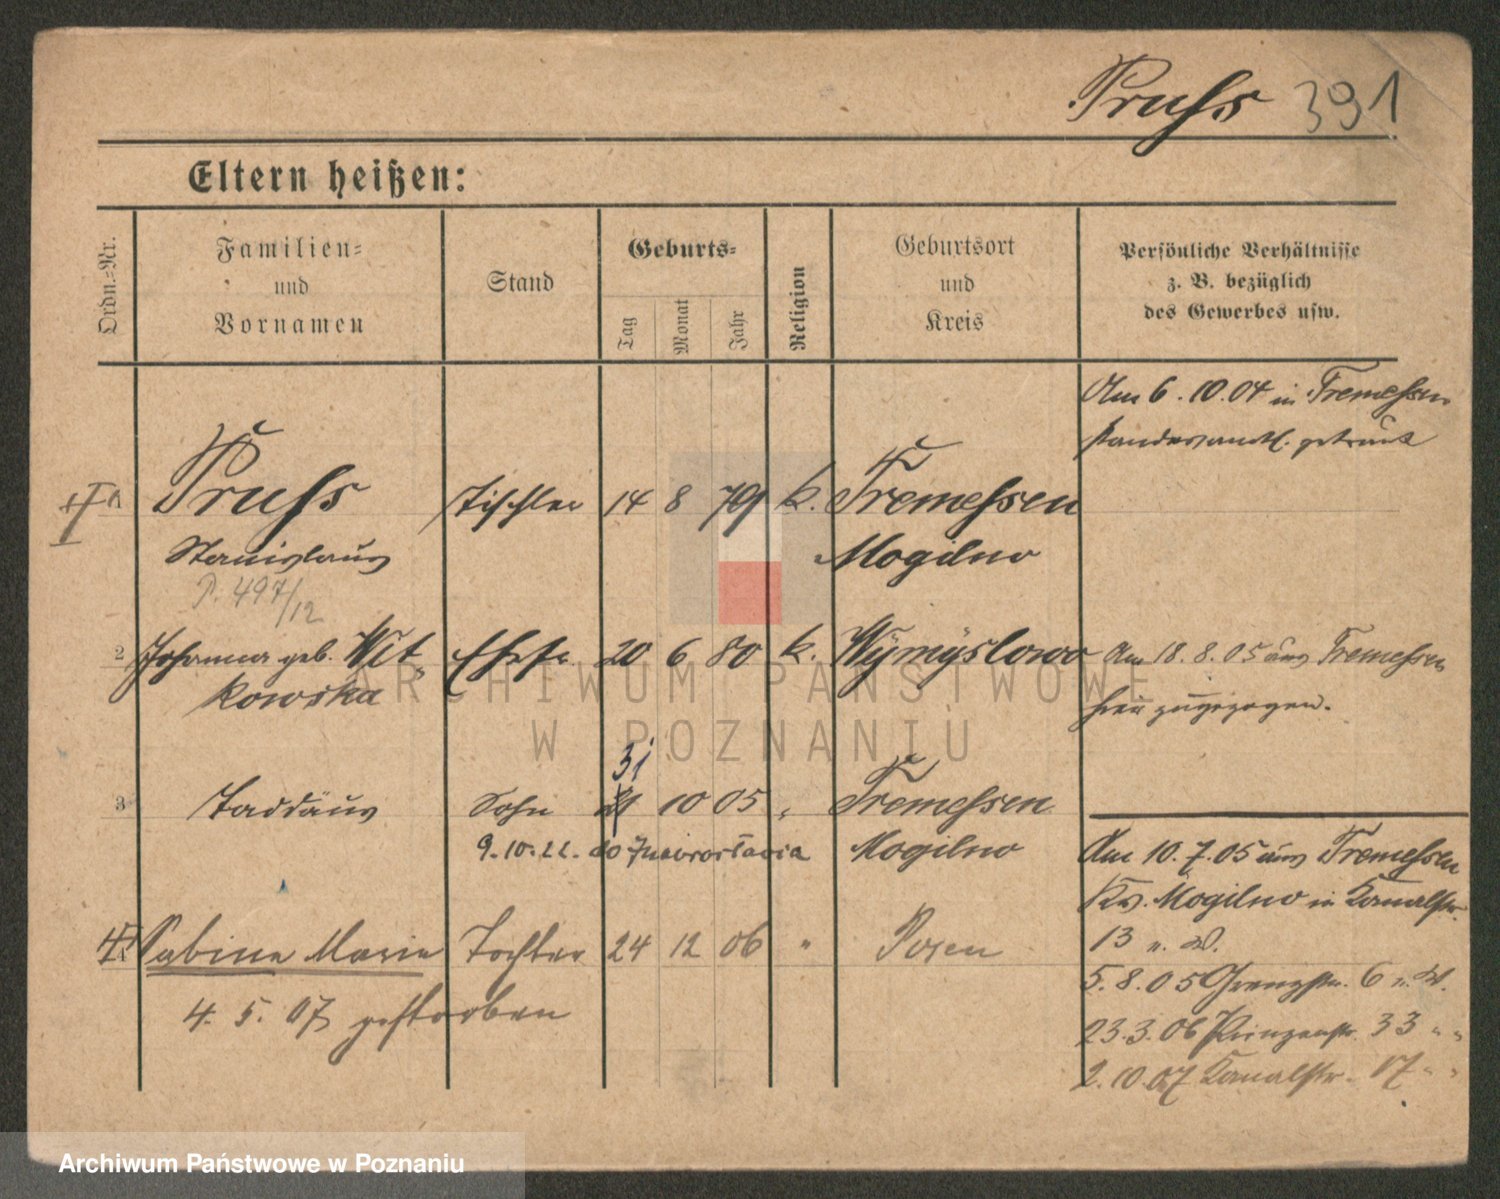 Pruſs 391
Eltern heißen:
Ordn.=Nr.
Familien=
und
Vornamen
Stand
Geburts=
Tag
Monat
Jahr
Religion
Geburtsort
und
Kreis
Persönliche Verhältnisse
z. B. bezüglich
des Gewerbes usw.
Am 6.10.04 in Tremeſsen
standesamtl. getraut
Pruſs Tischler 14 8 79 k. Tremeſsen
Stanislaus Mogilno
P. 497/12
2 Johanna geb. Wit- Ehefr. 20 6 80 k. Wÿmÿslowo Am 18.8.05 aus Tremeſsen
kowska hier zugezogen.
ARCHIWUM PAŃSTWOWE
W POZNANIU
31
3 Taddäus Sohn 21 10 05 " Tremeſsen
9.10.22. do Inowrocławia Mogilno
Am 10.7.05 aus Tremeſsen
Kr. Mogilno in Kanalstr.
4 Sabina Marie Tochter 24 12 06 " Posen
13 b. W.
4. 5. 07 gestorben
5.8.05 Grenzstr. 6 b. W.
23.3.06 Prinzenstr. 33 " "
2.10.07 Kanalstr. 17 " "
Archiwum Państwowe w Poznaniu